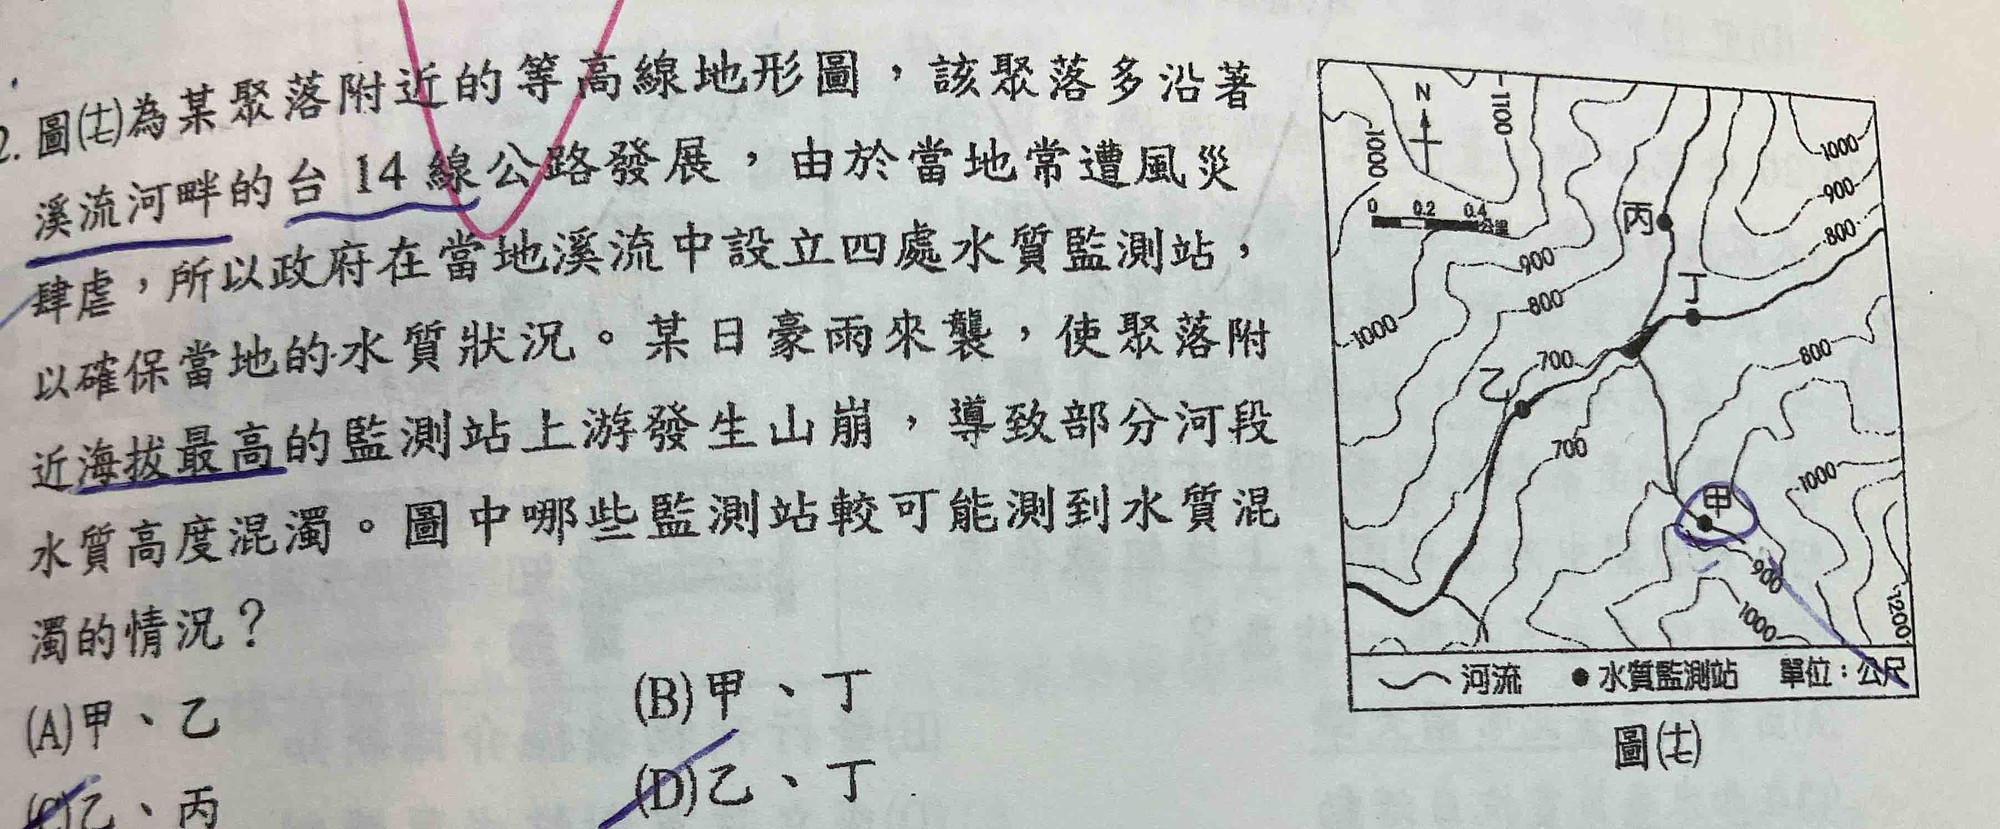 2. 圖(十七)為某聚落附近的等高線地形圖，該聚落多沿著
溪流河畔的台14線公路發展，由於當地常遭風災
肆虐，所以政府在當地溪流中設立四處水質監測站，
以確保當地的水質狀況。某日豪雨來襲，使聚落附
近海拔最高的監測站上游發生山崩，導致部分河段
水質高度混濁。圖中哪些監測站較可能測到水質混
濁的情況？
(A)甲、乙
(B)甲、丁
(C)乙、丙
(D)乙、丁
N
1100
1000
1000
900
0 0.2 0.4公里
丙
800
900
丁
800
1000
700
800
乙
700
1000
甲
900
1000
1200
河流 水質監測站 單位：公尺
圖(十七)